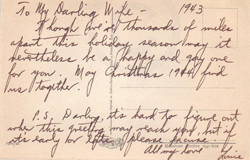 To My Darling Wife - 1943
Though we're thousands of miles
apart this holiday season may it
nevertheless be a happy and gay one
for you. May Christmas 1944 find
us together.
P.S. Darling it's hard to figure out
when this greeting may reach you, but if
its early or late, please
All my love